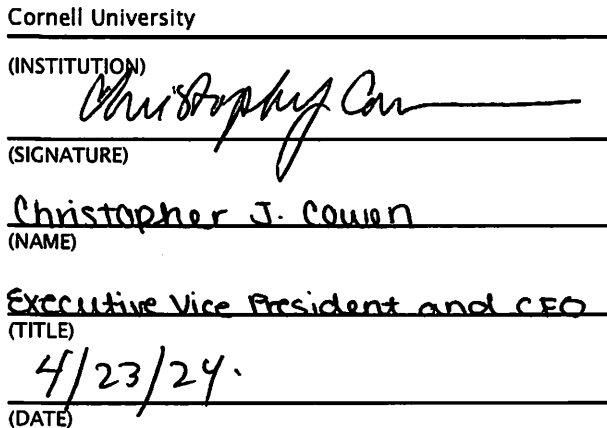 Cornell University
(INSTITUTION)
Christopher Cow
(SIGNATURE)
Christopher J. Cowen
(NAME)
Executive Vice President and CFO
(TITLE)
4/23/24.
(DATE)